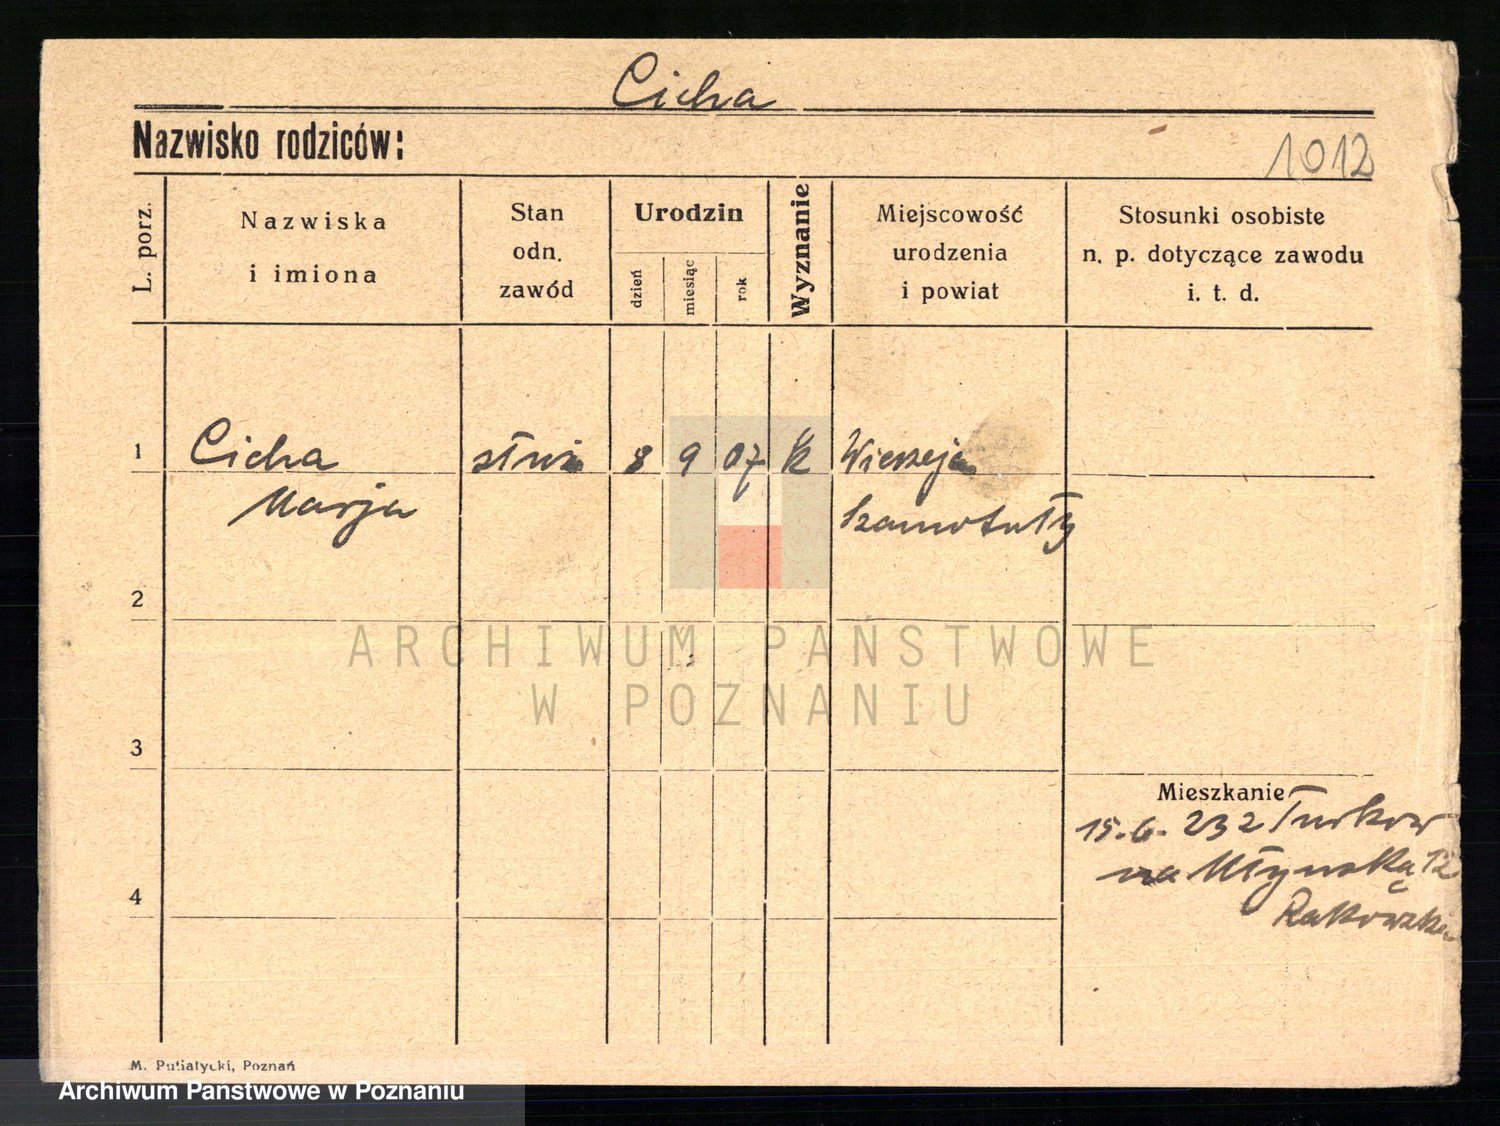 Cicha
Nazwisko rodziców:
1012
L. porz.
Nazwiska
i imiona
Stan
odn.
zawód
Urodzin
dzień
miesiąc
rok
Wyznanie
Miejscowość
urodzenia
i powiat
Stosunki osobiste
n. p. dotyczące zawodu
i. t. d.
1
Cicha służ 8 9 07 k Wierzeja
Marja Szamotuły
2
ARCHIWUM PAŃSTWOWE
W POZNANIU
3
Mieszkanie
15.6. 232
na Młyńską 12
4
M. Putiatycki, Poznań
Archiwum Państwowe w Poznaniu